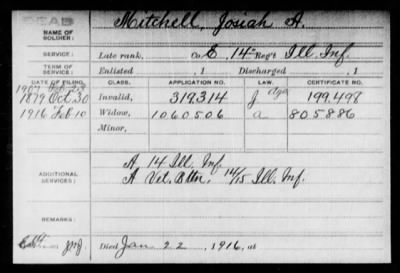 DEAD
NAME OF SOLDIER: Mitchell, Josiah A.
SERVICE: Late rank, Co. E, 14" Reg't Ill. Inf.
TERM OF SERVICE: Enlisted , 1 Discharged , 1
DATE OF FILING. CLASS. APPLICATION NO. LAW. CERTIFICATE NO.
1907
1879 Oct. 30 Invalid, 319.314 J 199.498
1916 Feb-10 Widow, 1060506 a 805886
Minor,
ADDITIONAL SERVICES: A 14 Ill. Inf.
A Vet. Bttn. 14/15 Ill. Inf.
REMARKS:
Died Jan. 22, 1916, at